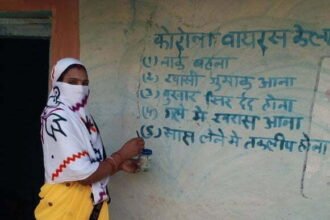 कोरोना वायरस के लक्ष
(1) नाक बहना
(2) खासी जुखाम आना
(3) बुखार सिर दर्द होना
(4) गले में खरास आना
(5) सास लेने मे तकलीप होना